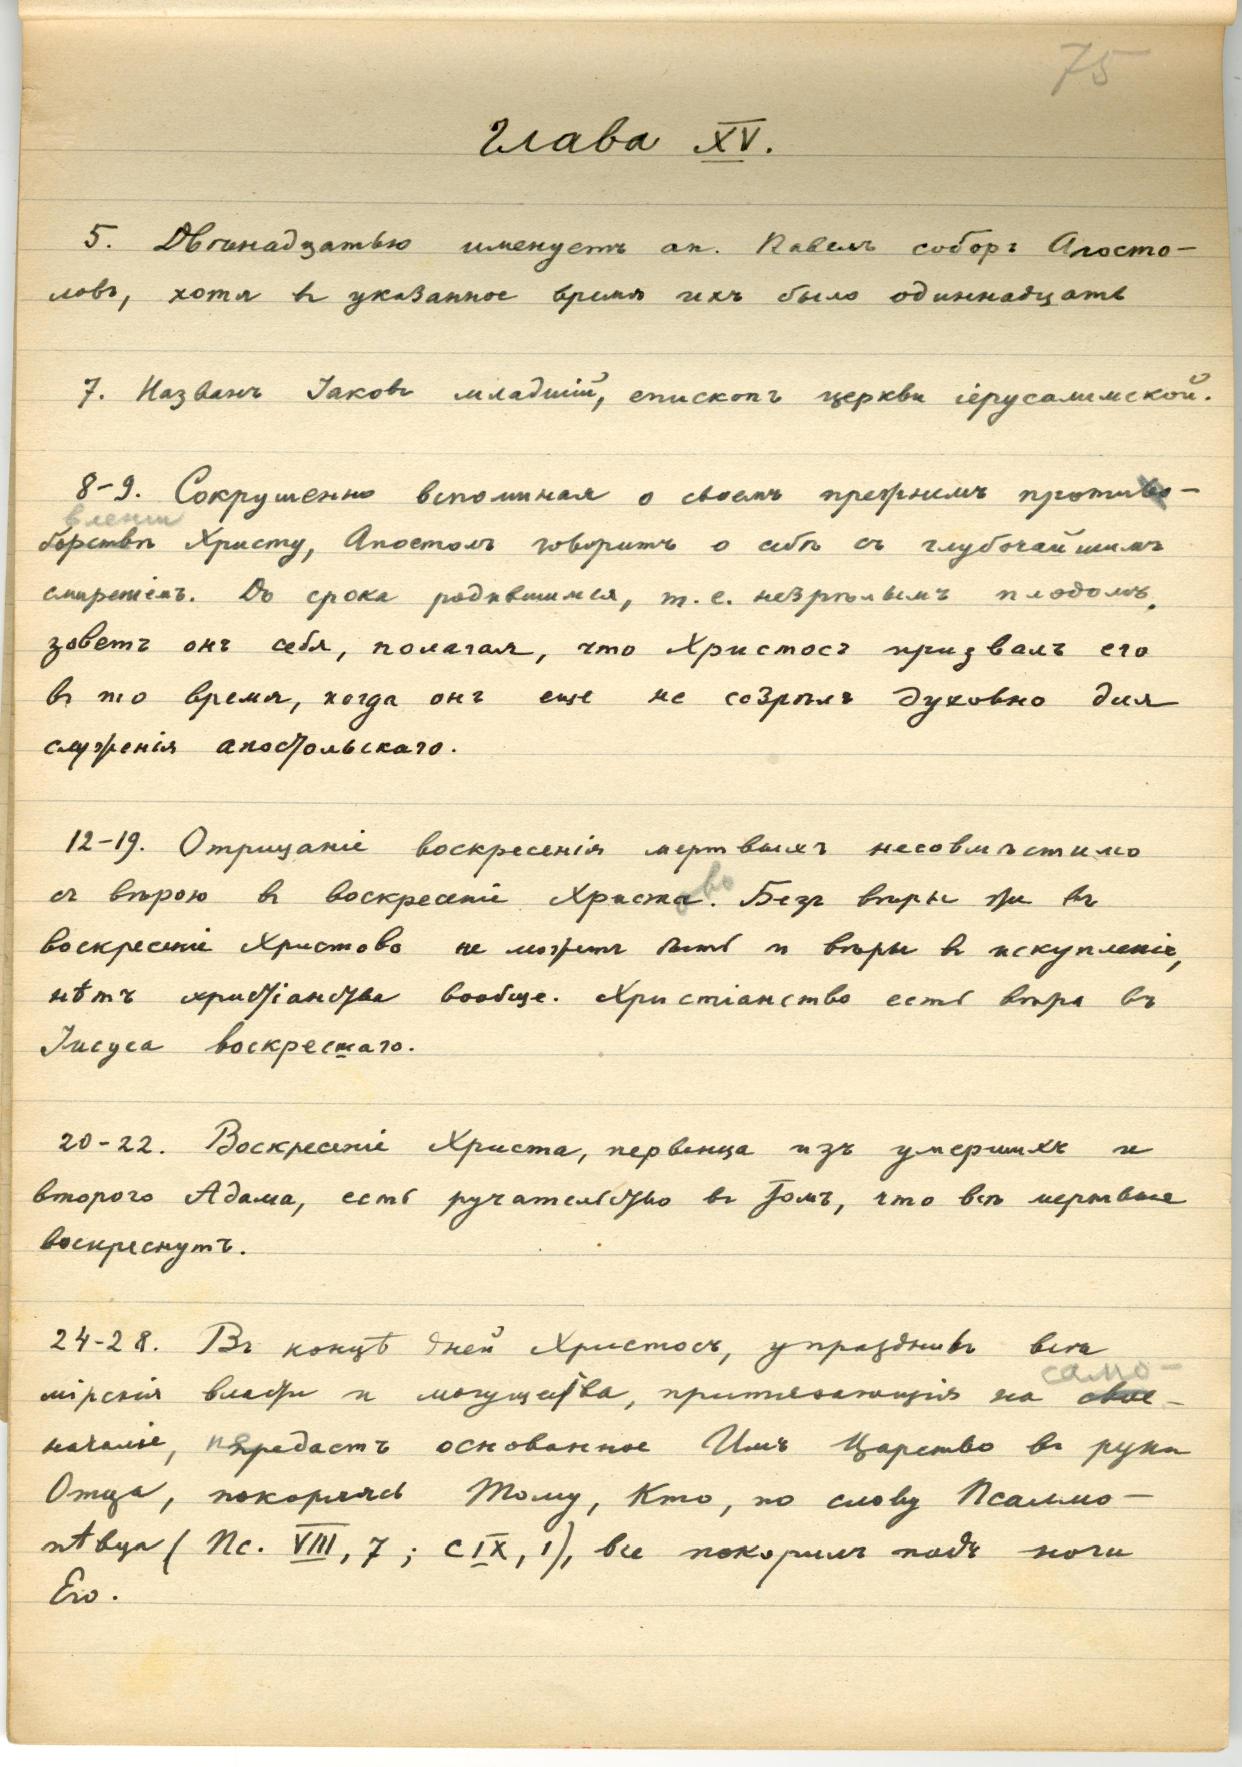 75
Глава XV.
5. Двѣнадцатью именуетъ ап. Павелъ соборъ Апосто-
ловъ, хотя въ указанное время ихъ было одиннадцать
7. Названъ Іаковъ младшій, епископъ церкви іерусалимской.
8-9. Сокрушенно вспоминая о своемъ прежнемъ противо-
влении
борствѣ Христу, Апостолъ говоритъ о себѣ съ глубочайшимъ
смиреніемъ. До срока родившимся, т.е. незрѣлымъ плодомъ,
зоветъ онъ себя, полагая, что Христосъ призвалъ его
въ то время, когда онъ еще не созрѣлъ духовно для
служенія апостольскаго.
12-19. Отрицаніе воскресенія мертвыхъ несовмѣстимо
съ вѣрою въ воскресеніе Христа. ово Безъ вѣры же въ
воскресеніе Христово не можетъ быть и вѣры въ искупленіе,
нѣтъ христіанства вообще. Христіанство есть вѣра въ
Іисуса воскресшаго.
20-22. Воскресеніе Христа, первенца изъ умершихъ и
второго Адама, есть ручательство въ томъ, что всѣ мертвые
воскреснутъ.
24-28. Въ концѣ дней Христосъ, упразднивъ всѣ
само-
мірскія власти и могущества, притязающія на свое-
началіе, передастъ основанное Имъ Царство въ руки
Отца, покоряясь Тому, Кто, по слову Псалмо-
пѣвца (Пс. VIII, 7; CIX, 1), все покорилъ подъ ноги
Его.